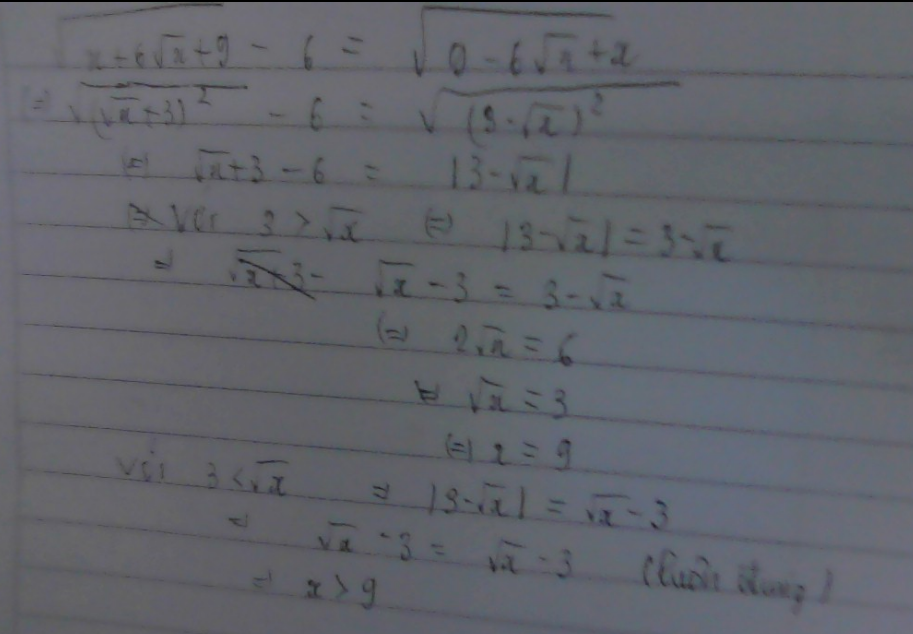 √(x+6√x+9) - 6 = √(9-6√x+x)
(=) √((√x+3)²) - 6 = √((3-√x)²)
(=) √x+3-6 = |3-√x|
Với 3 > √x (=) |3-√x| = 3-√x
=) √x - 3 = 3-√x
(=) 2√x = 6
(=) √x = 3
(=) x = 9
Với 3 < √x =) |3-√x| = √x - 3
=) √x - 3 = √x - 3 (luôn đúng)
=) x > 9